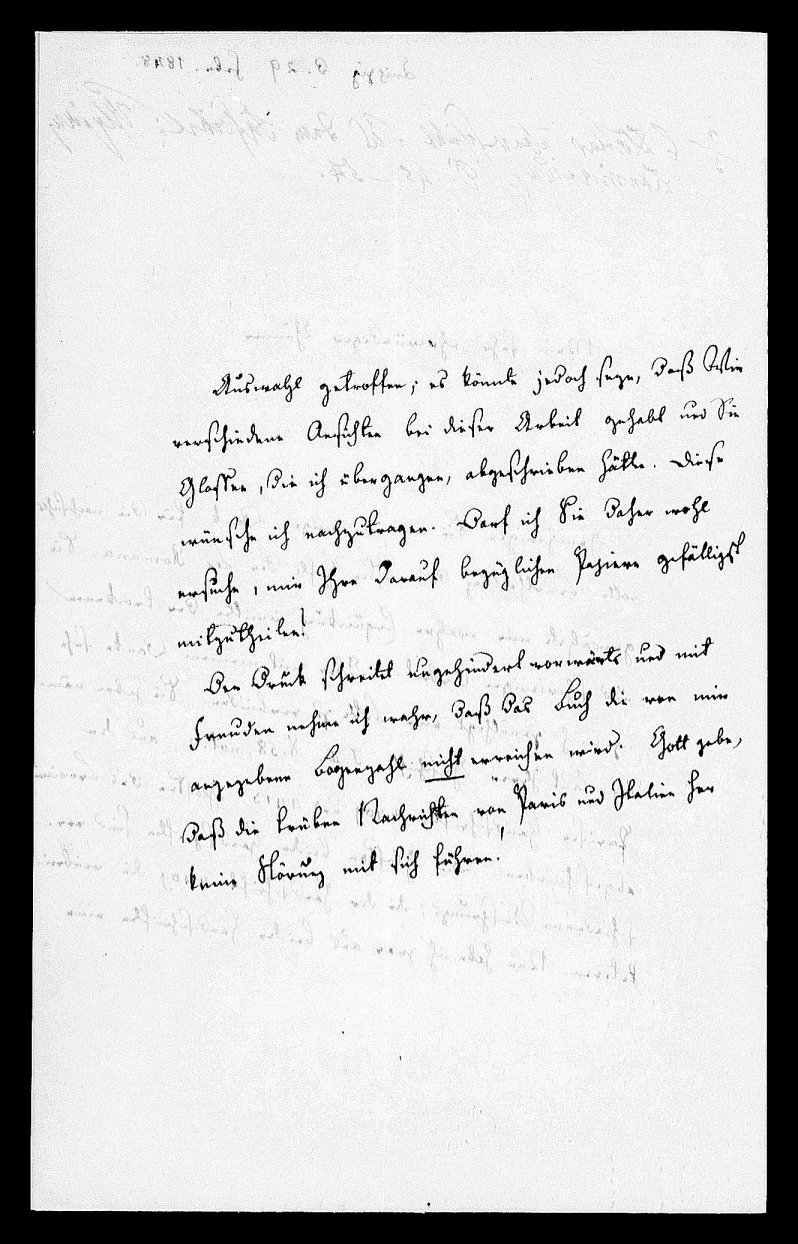 Auswahl getroffen; es könnte jedoch seyn, daß Wir
verschiedene Ansichten bei dieser Arbeit gehabt und Sie
Glossen, die ich übergangen, abgeschrieben hätte. Diese
wünsche ich nachzutragen. Darf ich Sie daher wohl
ersuchen, mir Ihre darauf bezüglichen Papiere gefälligst
mitzutheilen?
Der Druck schreitet ungehindert vorwärts und mit
Freuden nehme ich wahr, daß das Buch die von mir
angegebene Bogenzahl nicht erreichen wird. Gott gebe,
daß die trüben Nachrichten von Paris und Italien her
keine Störung mit sich führen!